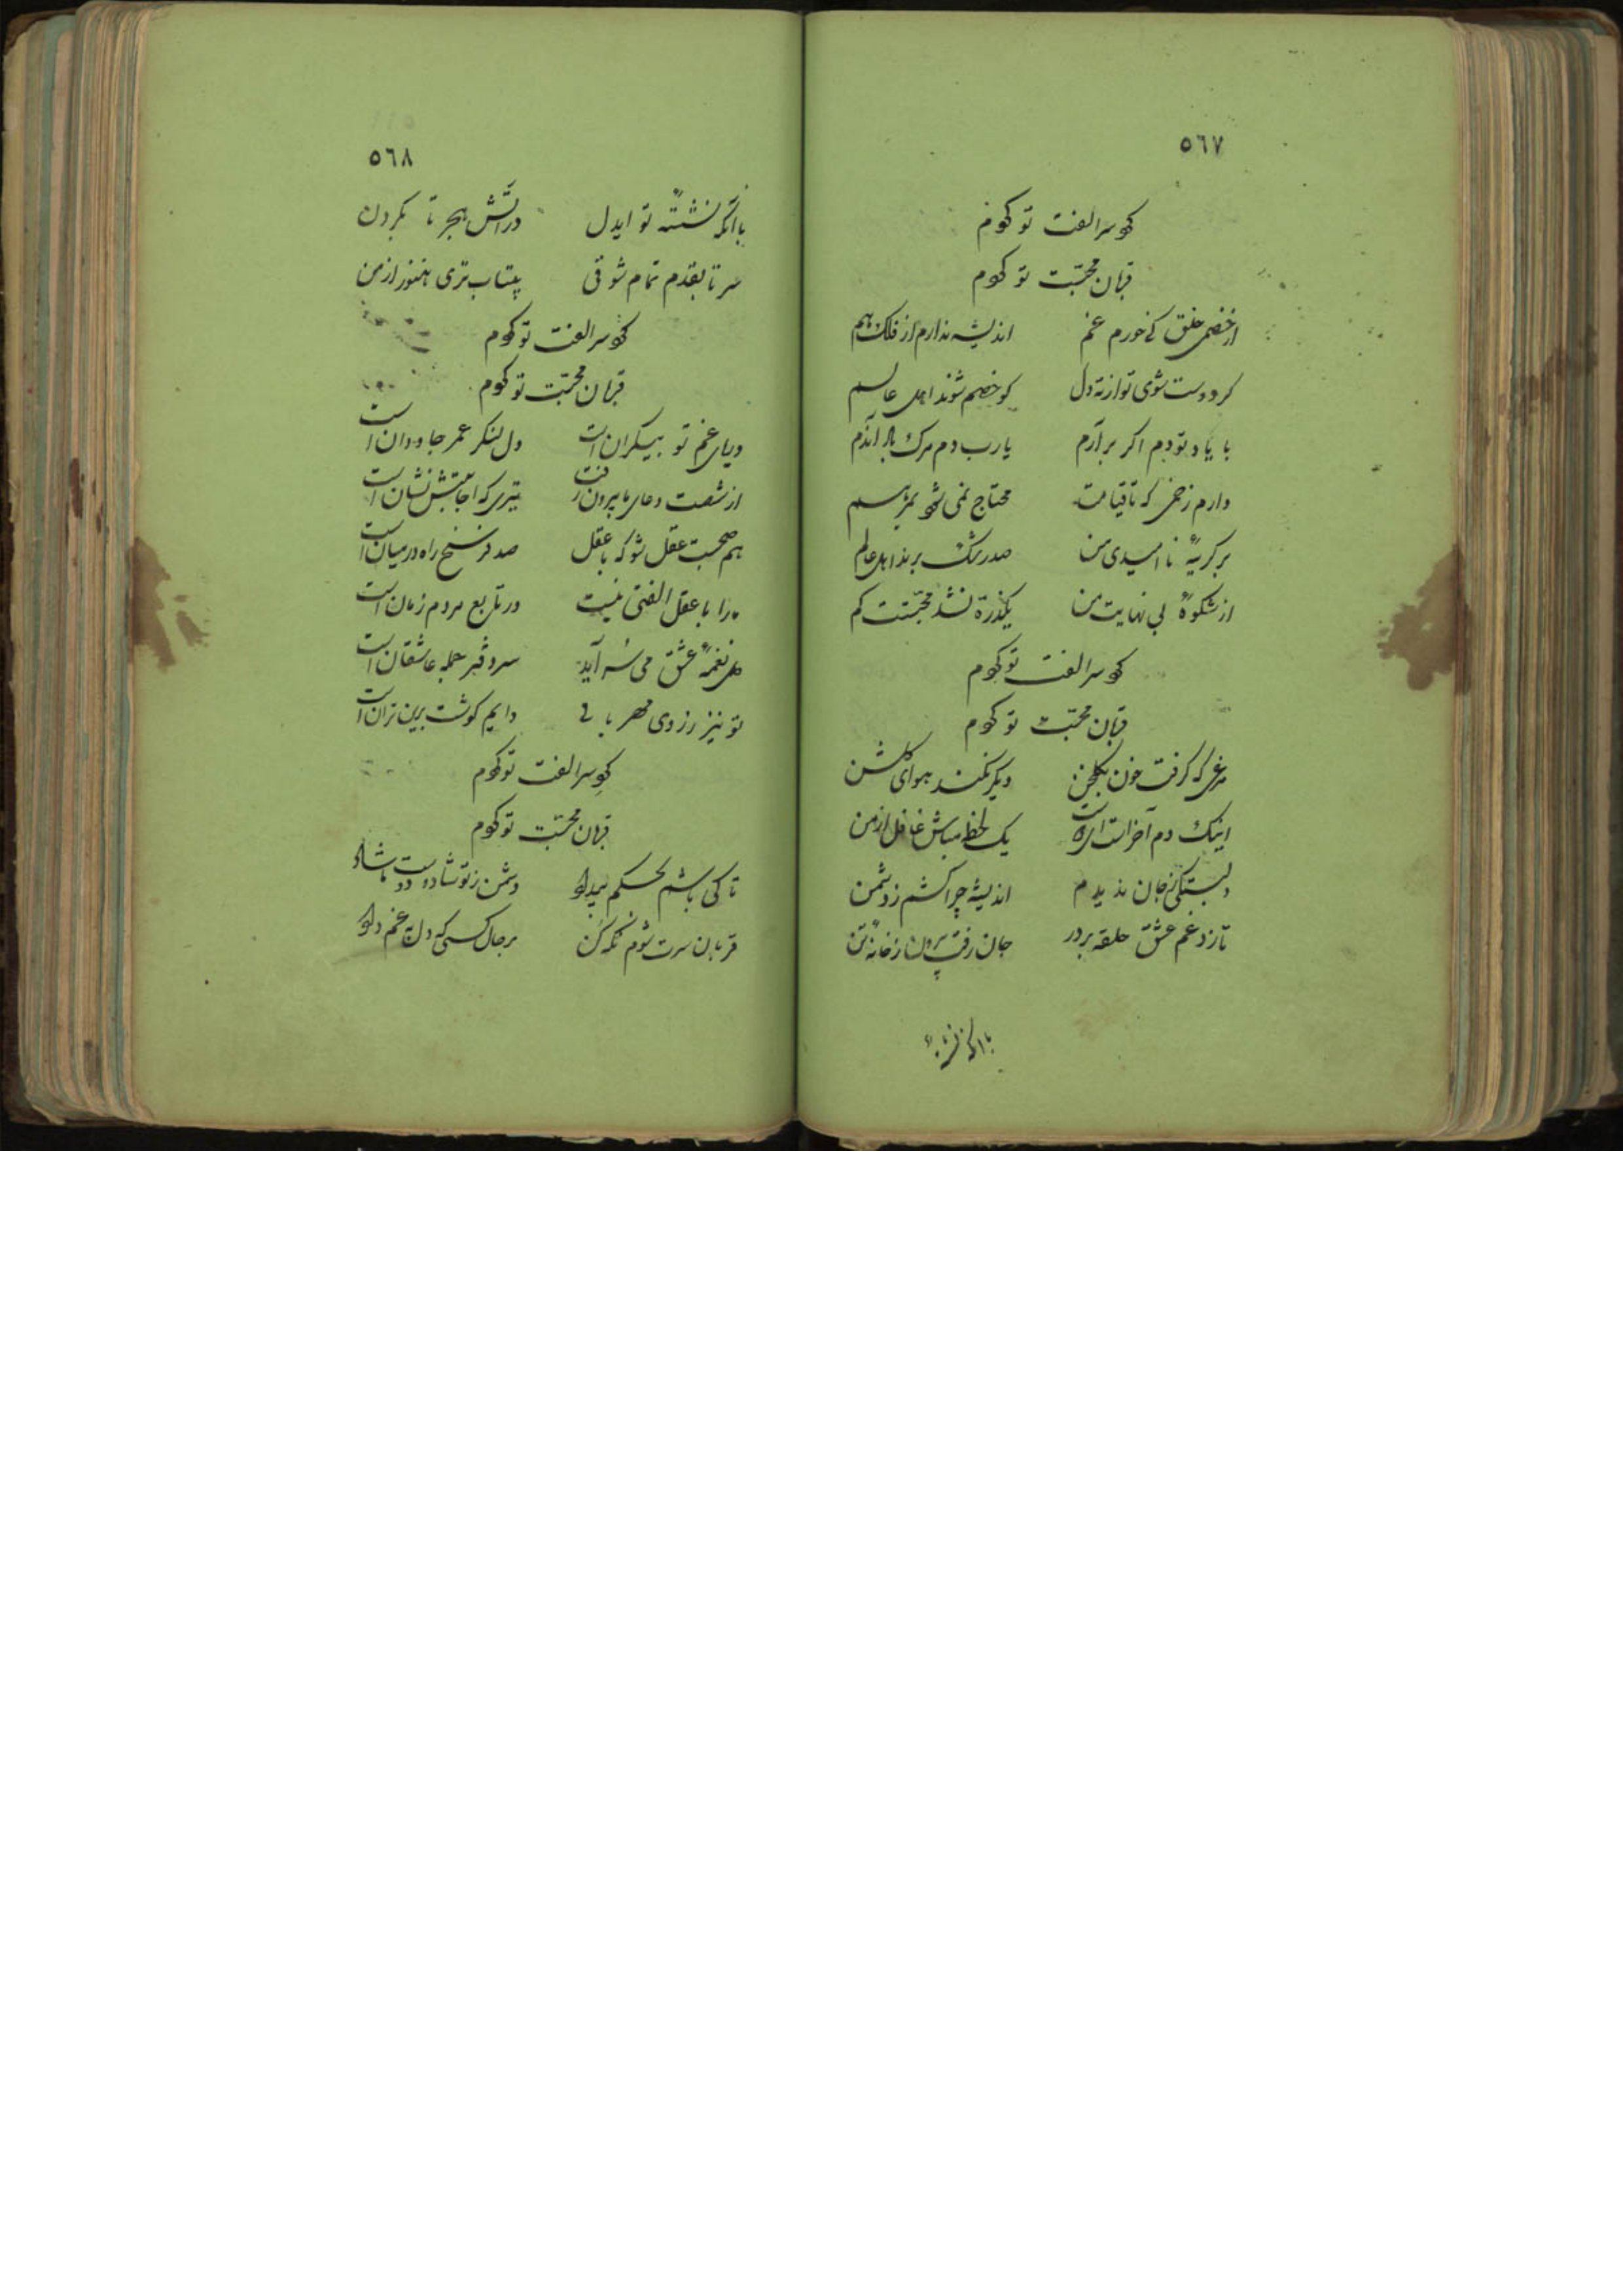 ٥٦٧
گرد سر الفت تو گردم
قربان محبّت تو گردم
از خصمی خلق کی خورم غم اندیشه ندارم از فلک هم
کر دوست شوی تو از ته دل کو خصم شوند اهل عالم
با یاد تو دم اکر برآرم یا رب دم مرک
دارم زخمی که تا قیامت محتاج نمی شود بمرهم
بر کریهٔ نا امیدی من صد رشک برند اهل عالم
از شکوهٔ بی نهایت من یکذرة نشد محبّتت کم
گرد سر الفت تو گردم
قربان محبّت تو گردم
مرغی که کرفت خون بکلخن دیکر نکند هوای کلشن
اینک دم آخر است یک لحظه مباش غافل از من
دلبستکی ز جان ندیدم اندیشه چرا کشم ز دشمن
تا زد غم عشق حلقه بر در جان رفت برون ز خانهٔ تن
با آنکه نشستهٔ
٥٦٨
با آنکه نشستهٔ تو ایدل در آتش هجر تا بکردن
سر تا بقدم تمام شوقی بیتاب تری هنوز از من
گرد سر الفت تو گردم
قربان محبّت تو گردم
دریای غم تو بیکران است دل لنکر عمر جاودان است
از شصت دعای ما برون رفت تیری که اجابتش نشان است
هم صحبت عقل شو که با عقل صد فرسخ راه در میان است
ما را با عقل الفتی نیست در تابع مردم زمان است
نغمهٔ عشق می سراید سر دفتر جمله عاشقان است
تو نیز ز روی مهربانی دایم کوشت برین تران است
گرد سر الفت تو گردم
قربان محبّت تو گردم
تا کی باشم بحکم بیداد دشمن ز تو شاد و دوست ناشاد
قربان سرت شوم نکه کن بر حال کسی که دل بغم داد